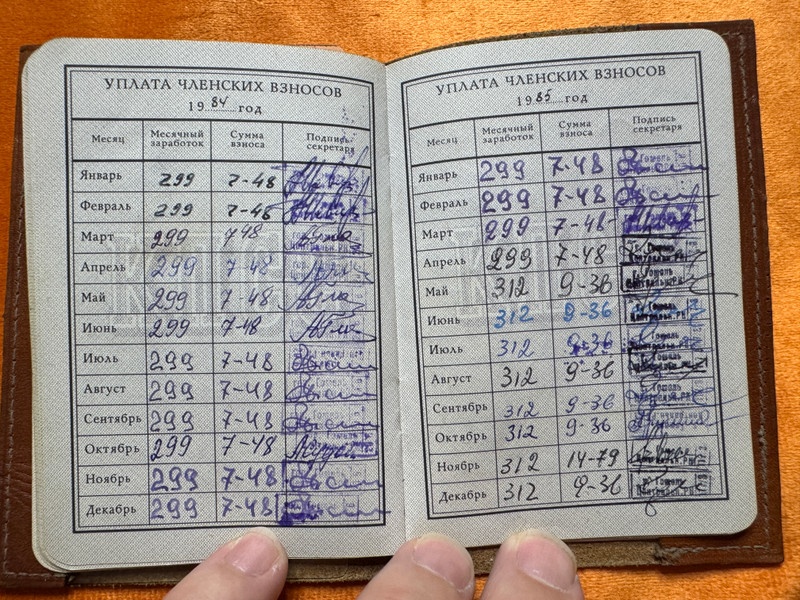 УПЛАТА ЧЛЕНСКИХ ВЗНОСОВ
1984 год
Месяц Месячный заработок Сумма взноса Подпись секретаря
Январь 299 7-48
Февраль 299 7-48
Март 299 7-48
Апрель 299 7-48
Май 299 7-48
Июнь 299 7-48
Июль 299 7-48
Август 299 7-48
Сентябрь 299 7-48
Октябрь 299 7-48
Ноябрь 299 7-48
Декабрь 299 7-48
УПЛАТА ЧЛЕНСКИХ ВЗНОСОВ
1985 год
Месяц Месячный заработок Сумма взноса Подпись секретаря
Январь 299 7-48
Февраль 299 7-48
Март 299 7-48
Апрель 299 7-48 г. Гомель
Май 312 9-36 г. Гомель
Июнь 312 9-36 Гомель
Июль 312 9-36 Гомель
Август 312 9-36 Гомель
Сентябрь 312 9-36 Гомель
Октябрь 312 9-36
Ноябрь 312 14-79
Декабрь 312 9-36 г. Гомель